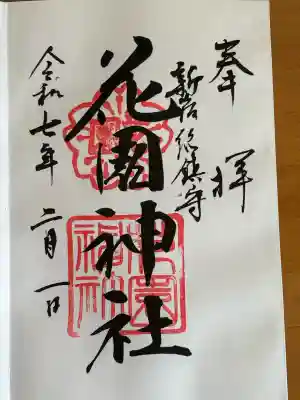 奉拝
新宿総鎮守
花園神社
令和七年二月一日
花園神社